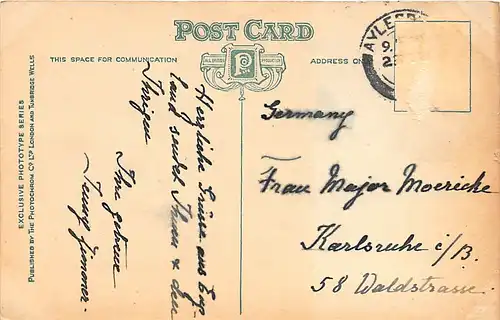 POST CARD
THIS SPACE FOR COMMUNICATION
ADDRESS ON
AYLESB
9.
2
EXCLUSIVE PHOTOTYPE SERIES
PUBLISHED BY THE PHOTOCHROM CO LTD LONDON AND TUNBRIDGE WELLS
Herzliche Grüsse aus Eng-
land sendet Ihnen & den
Ihrigen
Ihre getreue
Germany
Frau Major Moericke
Karlsruhe i/B.
58 Waldstrasse.